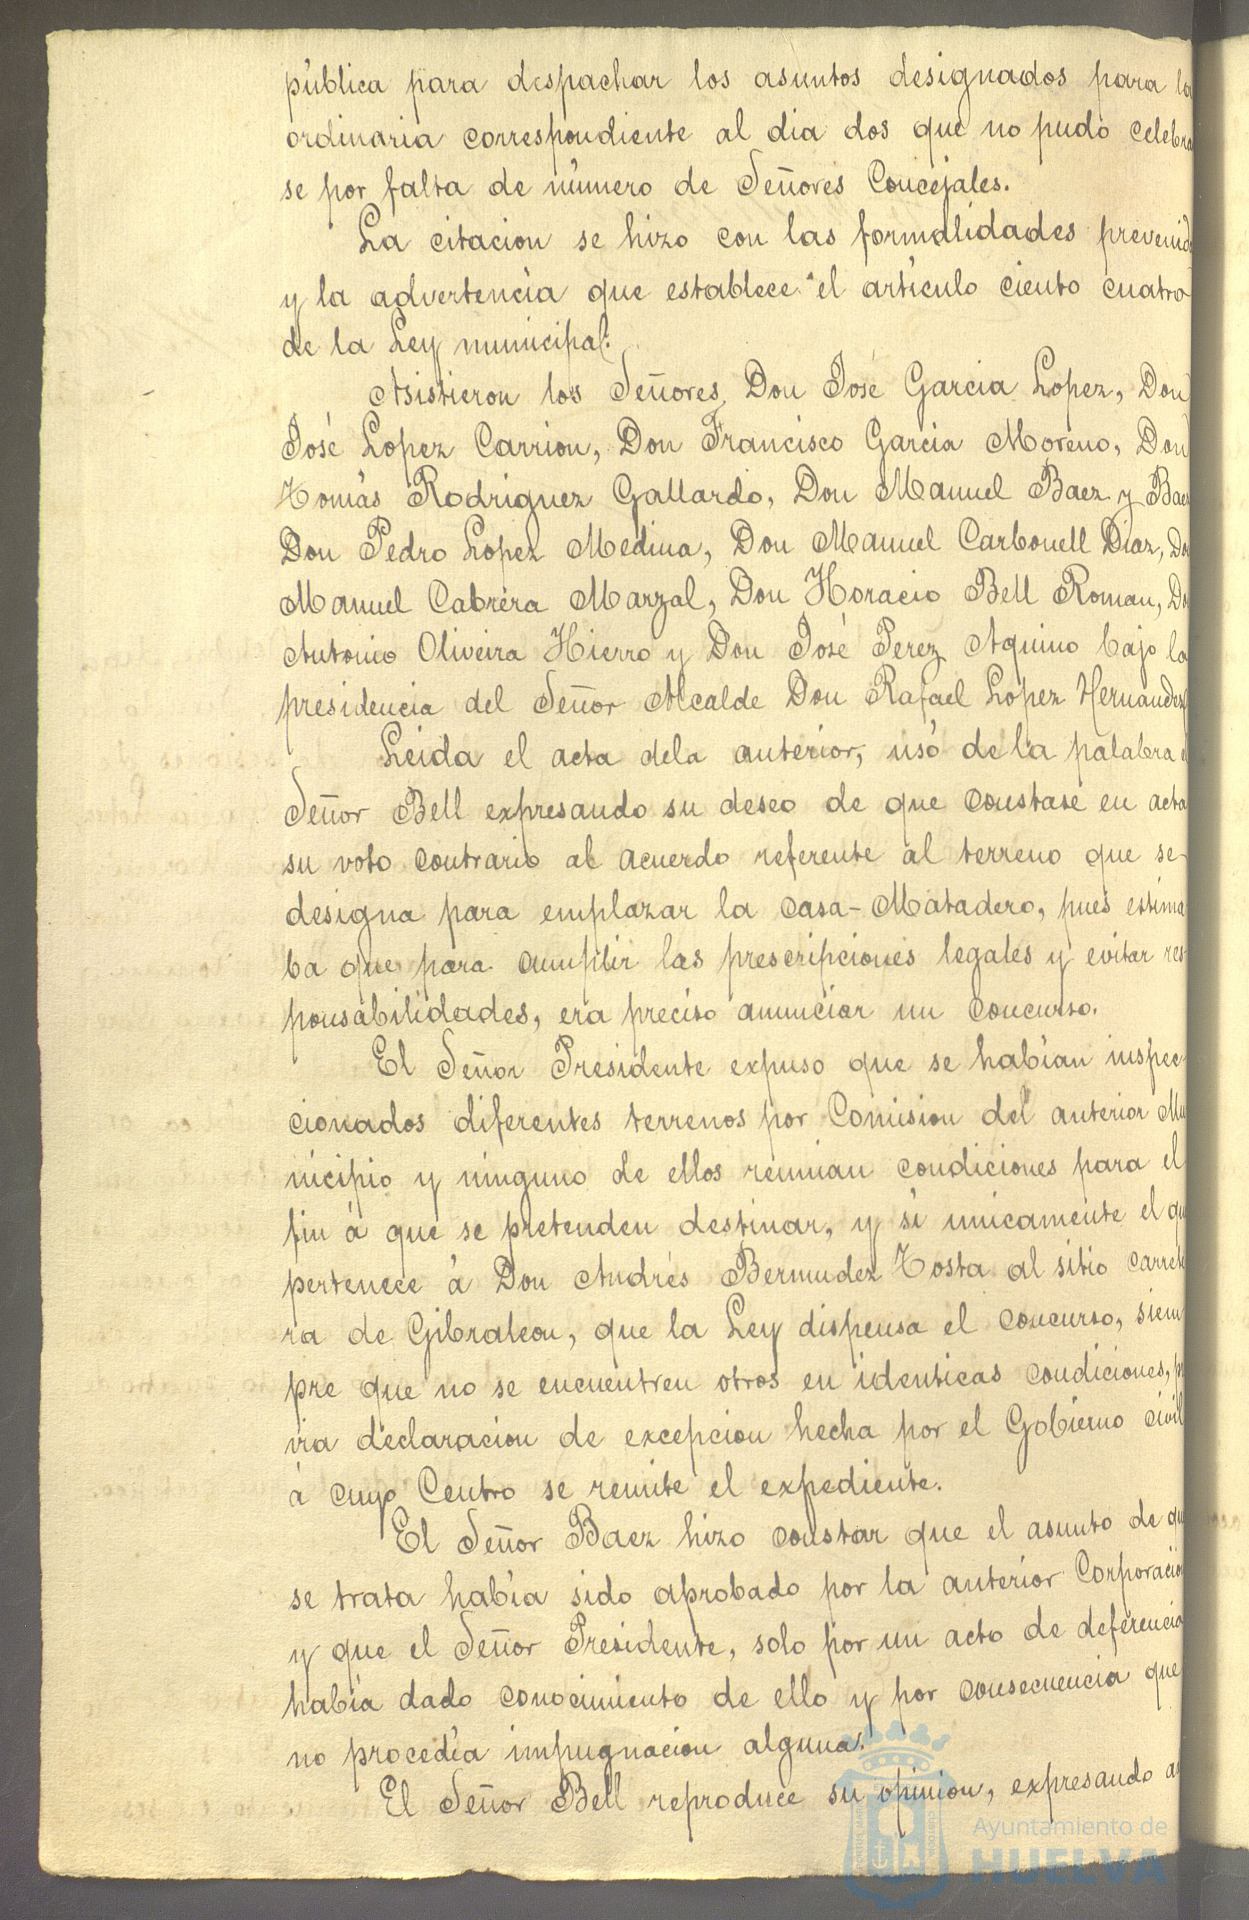 pública para despachar los asuntos designados para la
ordinaria correspondiente al dia dos que no pudo celebra
se por falta de número de Señores Concejales.
La citacion se hizo con las formalidades prevenid
y la advertencia que establece el artículo ciento cuatro
de la Ley municipal.
Asistieron los Señores, Don José Garcia Lopez, Don
José Lopez Carrion, Don Francisco Garcia Moreno, Don
Tomás Rodriguez Gallardo, Don Manuel Baez y Baez
Don Pedro Lopez Medina, Don Manuel Carbonell Diaz, Do
Manuel Cabrera Marzal, Don Horacio Bell Roman, Do
Antonio Oliveira Hierro y Don José Perez Aquino bajo la
presidencia del Señor Alcalde Don Rafael Lopez Hernandez
Leida el acta dela anterior, usó de la palabra e
Señor Bell expresando su deseo de que constase en acta
su voto contrario al acuerdo referente al terreno que se
designa para emplazar la casa-Matadero, pues estima
ba que para cumplir las prescripciones legales y evitar res-
ponsabilidades, era preciso anunciar un concurso.
El Señor Presidente expuso que se habían inspec-
cionados diferentes terrenos por Comision del anterior Mu
nicipio y ninguno de ellos reunian condiciones para el
fin á que se pretenden destinar, y si unicamente el qu
pertenece á Don Andrés Bermudez Tosta al sitio carrete
ra de Gibraleon, que la Ley dispensa el concurso, siem
pre que no se encuentren otros en identicas condiciones, p
via declaracion de excepcion hecha por el Gobierno civil
á cuyo Centro se remite el expediente.
El Señor Baez hizo constar que el asunto de qu
se trata había sido aprobado por la anterior Corporación
y que el Señor Presidente, solo por un acto de deferencia
había dado conocimiento de ello y por consecuencia que
no procedía impugnacion alguna.
El Señor Bell reproduce su opinion, expresando a
Ayuntamiento de
HUELVA